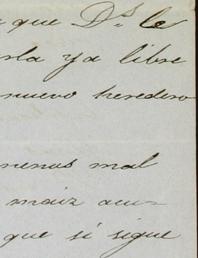 que D.s le
rla ya libre
nuevo heredero
menos mal
maiz
que si sigue